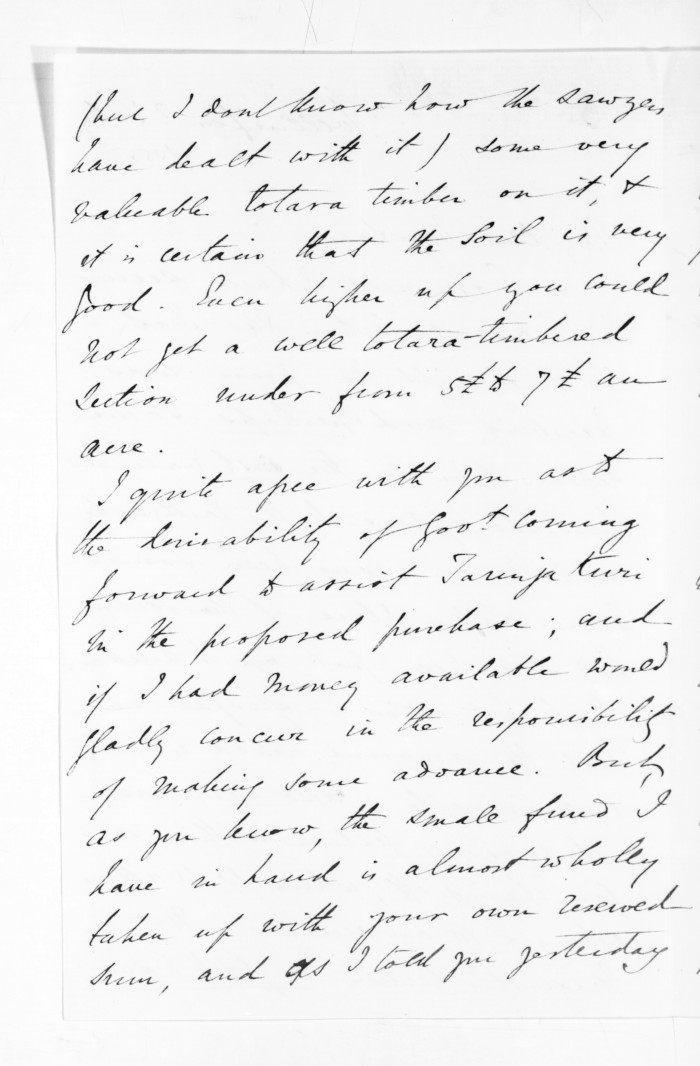 (but I dont know how the sawyers
have dealt with it) some very
valuable totara timber on it, &
it is certain that the soil is very
good. Even higher up you could
not get a well totara-timbered
section under from 5£ to 7£ an
acre.
I quite agree with you as to
the desirability of Govt. coming
forward to assist Tareha Kuri
in the proposed purchase; and
if I had money available would
gladly concur in the responsibility
of making some advance. But,
as you know, the small fund I
have in hand is almost wholly
taken up with your own reserved
sum, and as I told you yesterday